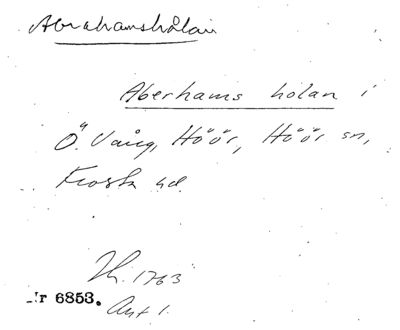 Abrahamshålan
Aberhams holan i
Ö. Vång, Höör, Höör sn,
Frosta hd.
Lh. 1763
Nr 6853.
Akt 1.